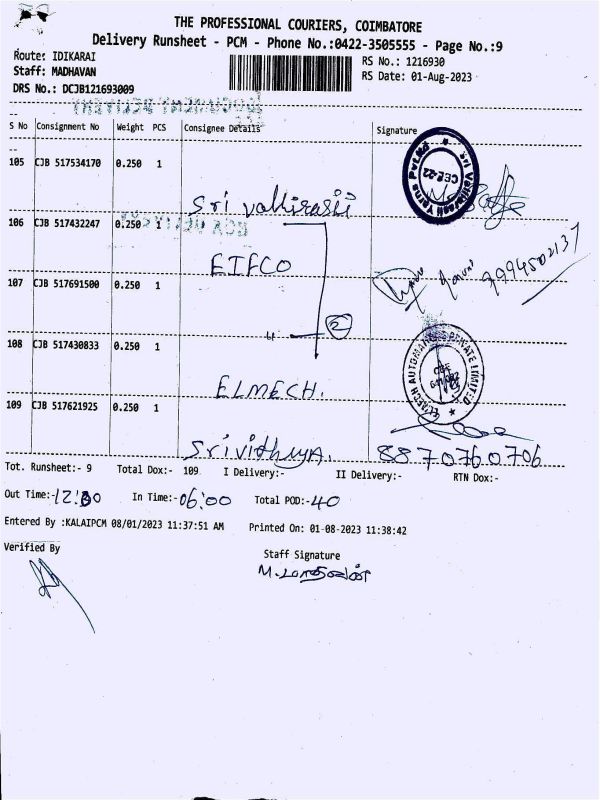 THE PROFESSIONAL COURIERS, COIMBATORE
Delivery Runsheet - PCM - Phone No.:0422-3505555 - Page No.:9
Route: IDIKARAI
RS No.: 1216930
Staff: MADHAVAN
RS Date: 01-Aug-2023
DRS No.: DCJB121693009
S No Consignment No Weight PCS Consignee Details Signature
105 CJB 517534170 0.250 1
Sri Vallirasii
106 CJB 517432247 0.250 1
EIFCO
9994502137
107 CJB 517691500 0.250 1
2
108 CJB 517430833 0.250 1
ELMECH.
109 CJB 517621925 0.250 1
Srividhya.
8870760706
Tot. Runsheet:- 9 Total Dox:- 109 I Delivery:- II Delivery:- RTN Dox:-
Out Time:- In Time:-06:00 Total POD:-40
Entered By :KALAIPCM 08/01/2023 11:37:51 AM Printed On: 01-08-2023 11:38:42
Verified By
Staff Signature
M.மாதவன்